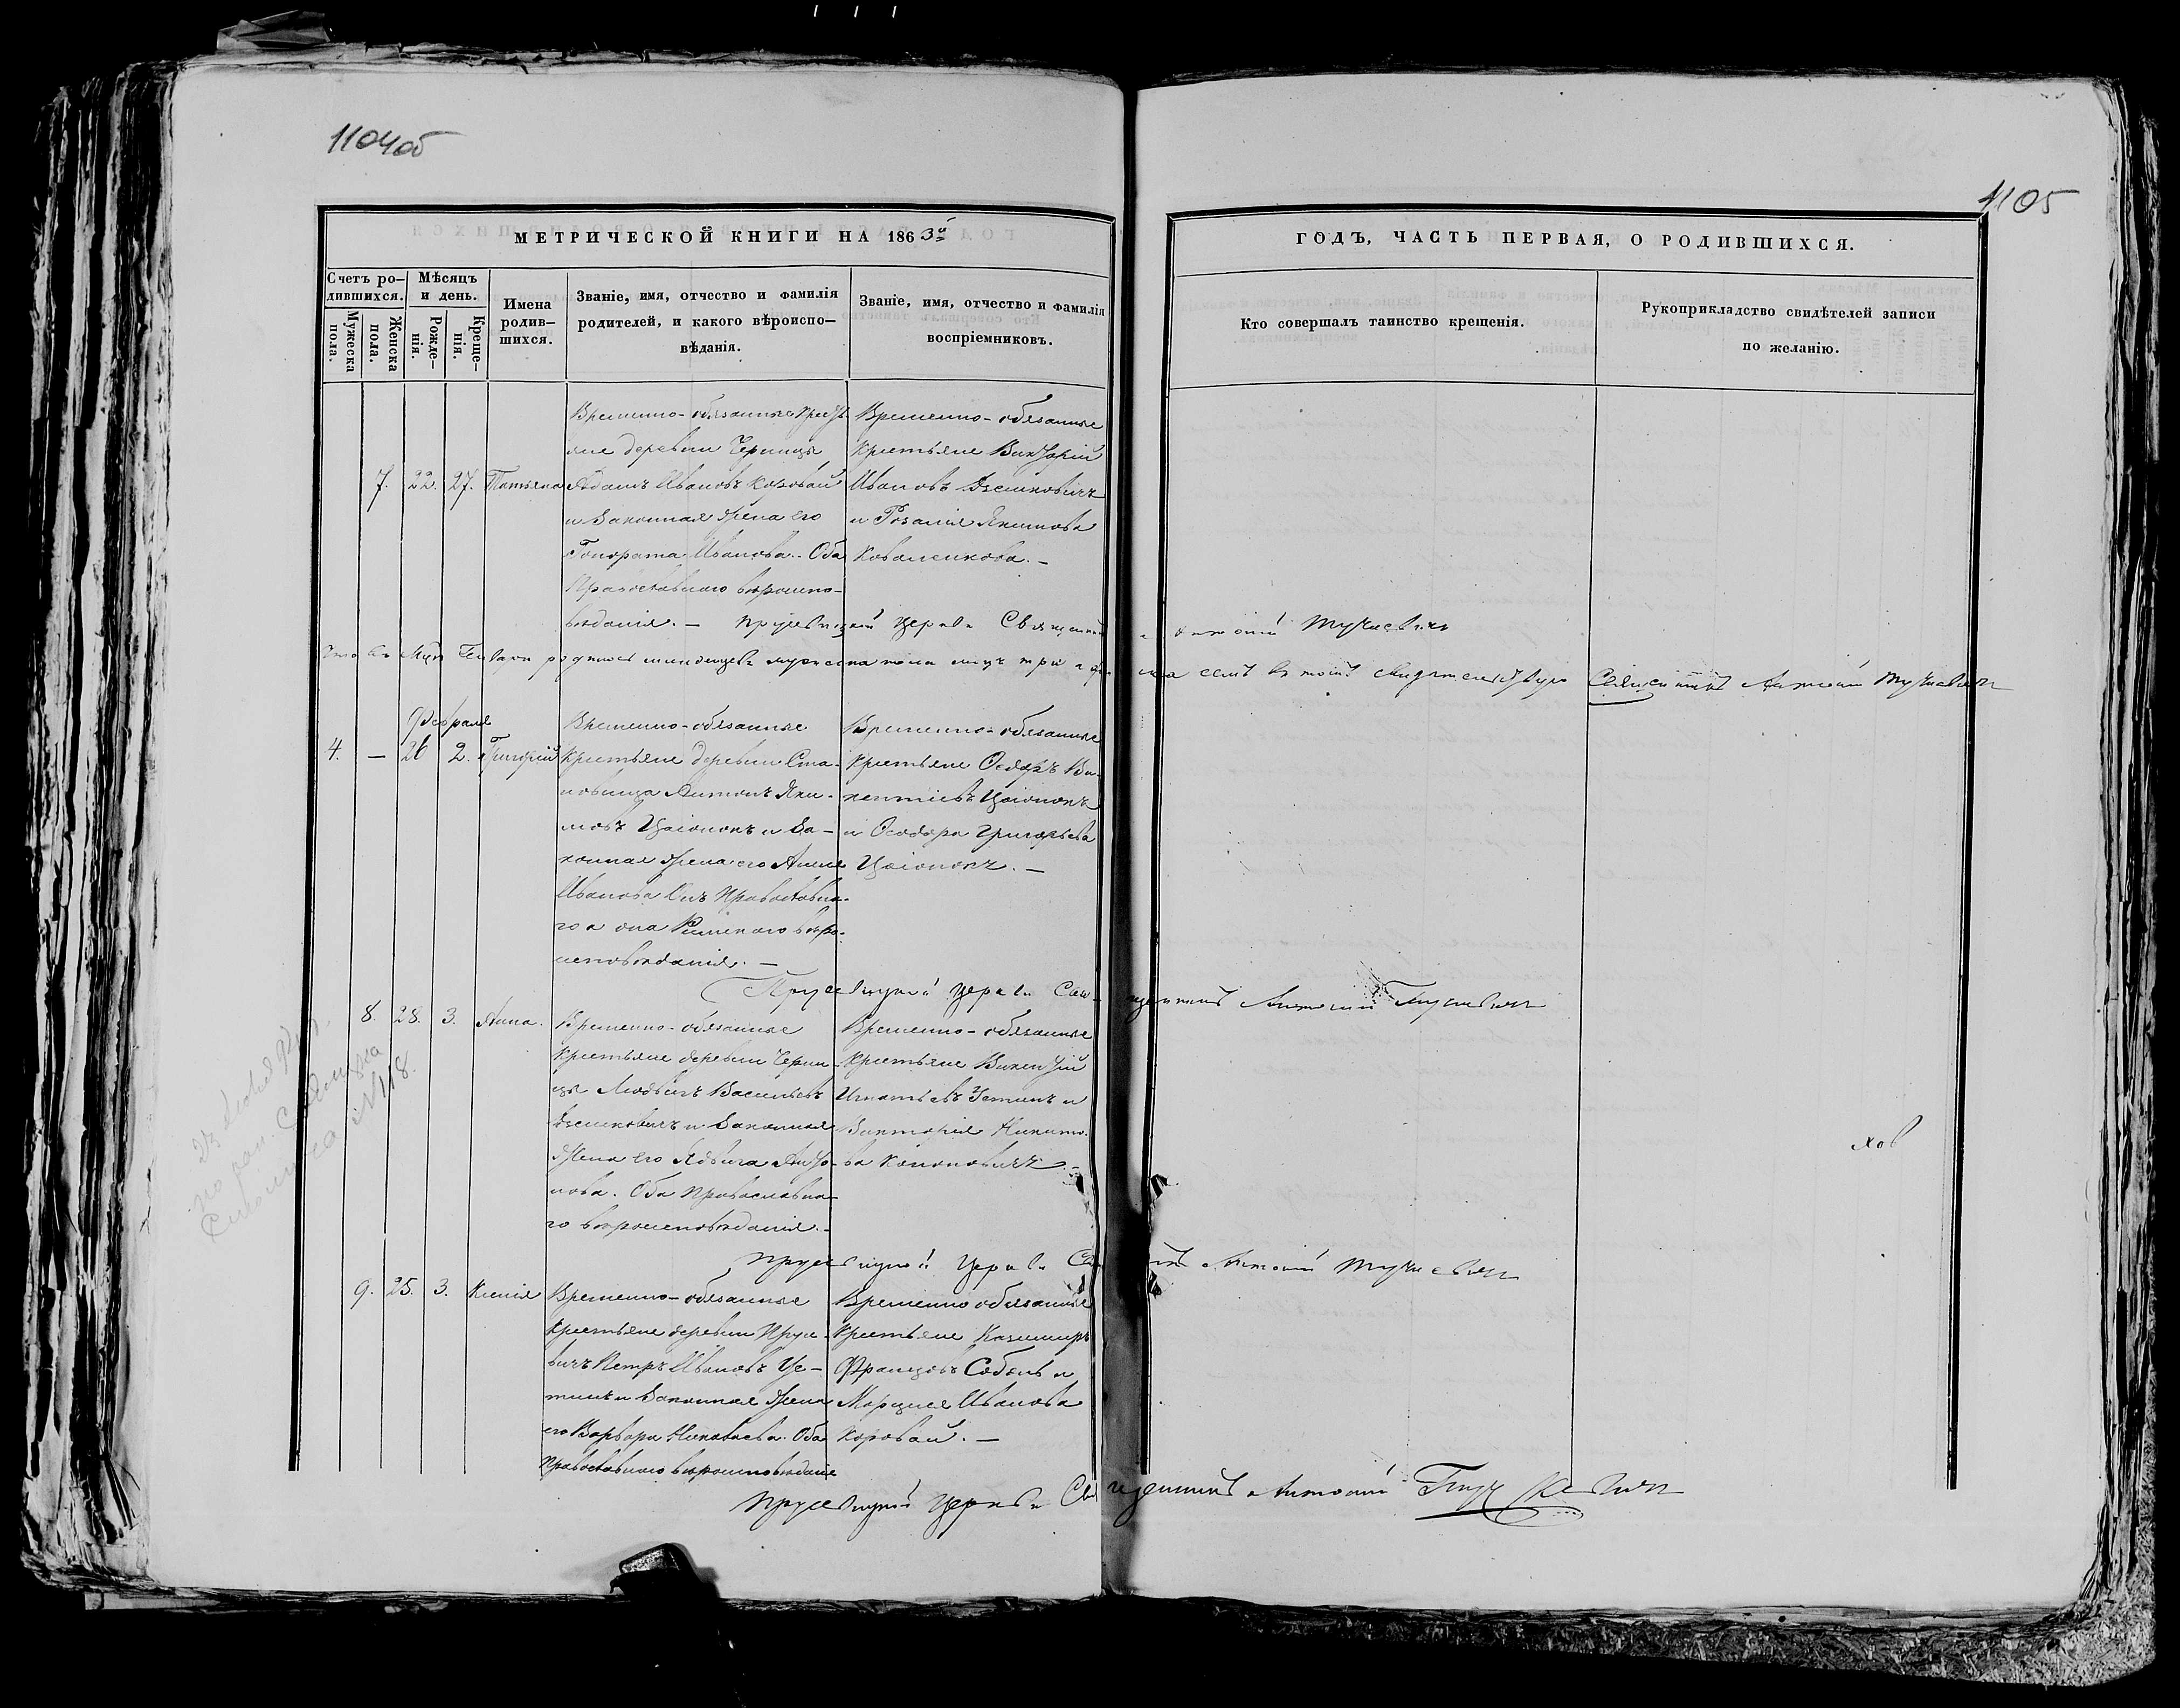 1104об
1105
МЕТРИЧЕСКОЙ КНИГИ НА 1863й
ГОДЪ, ЧАСТЬ ПЕРВАЯ, О РОДИВШИХСЯ.
Счетъ ро-
дившихся.
Мужеска пола.
Женска пола.
Мѣсяцъ
и день.
Рожде-
нія.
Креще-
нія.
Имена
родив-
шихся.
Званіе, имя, отчество и фамилія
родителей, и какого вѣроиспо-
вѣданія.
Званіе, имя, отчество и фамилія
воспріемниковъ.
Кто совершалъ таинство крещенія.
Рукоприкладство свидѣтелей записи
по желанію.
7. 22. 27. Татьяна
Временно-обязанные Кресть
яне деревни Черницы
Адамъ Ивановъ Коровай
и законная жена его
Гонората Иванова. Оба
Православнаго вѣроиспо-
вѣданія. —
Временно-обязанные
Крестьяне
Ивановъ Дземковичъ
и Розалія Якимова
Коваленкова. —
Прусевицкой Церкви Священникъ Антоній Тучкевичъ
Что въ Генваря родилось младенцевъ мужеска пола три а женска семь въ томъ свидѣтельствую Священникъ Антоній Тучкевичъ
Февраля
4. — 26 2. Григорій
Временно-обязанные
Крестьяне деревни Ста-
новища Антонъ Яки-
мовъ и За-
конная жена его
Иванова Онъ Православна-
го а она Римскаго вѣро-
исповѣданія. —
Временно-обязанные
Крестьяне Осафъ Ви-
кентіевъ
и Григорьева
Прусевицкой Церкви Священникъ Антоній Тучкевичъ
8. 28. 3. Анна.
Временно-обязанные
Крестьяне деревни Черни-
цы Людвигъ Васильевъ
Дземковичъ и Законная
жена его Ядвига Анто-
нова. Оба Православна-
го вѣроисповѣданія. —
Временно-обязанные
Крестьяне Викентій
Игнатьевъ Устинъ и
Викторія Никито-
ва Кононовичъ. —
Прусевицкой Церкви Священникъ Антоній Тучкевичъ
9. 25. 3. Ксенія
Временно-обязанные
Крестьяне деревни Прусе-
вичъ Петръ Ивановъ Ус-
тинъ и Законная жена
его Варвара Николаева. Оба
Православнаго вѣроисповѣданія
Временно обязанные
Крестьяне Казимиръ
Францовъ Соболь и
Марцеля Иванова
Коровай. —
Прусевицкой Церкви Священникъ Антоній Тучкевичъ
№ 118.